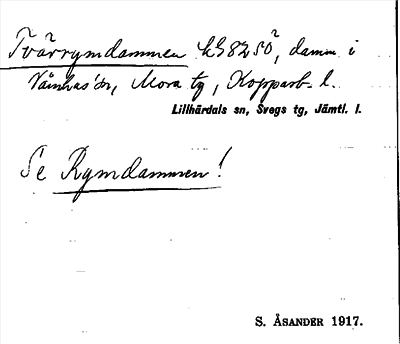 Tvärrymdammen kG8250², damm i
Våmhus' sn, Mora tg, Kopparb. l.
Lillhärdals sn, Svegs tg, Jämtl. l.
Se Rymdammen!
S. ÅSANDER 1917.